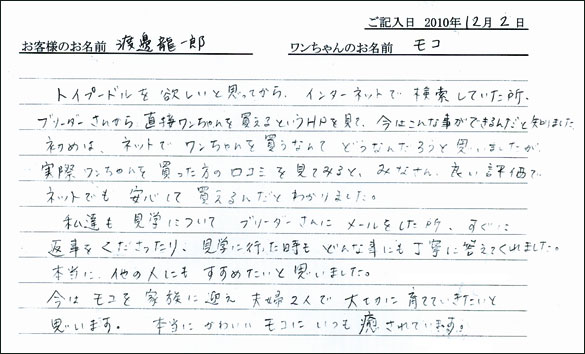 ご記入日 2010年12月2日
お客様のお名前 渡邊龍一郎 ワンちゃんのお名前 モコ
トイプードルを欲しいと思ってから、インターネットで検索していた所、
ブリーダーさんから直接ワンちゃんを買えるというHPを見て、今はこんな事ができるんだと知りました。
初めは、ネットでワンちゃんを買うなんてどうなんだろうと思いましたが、
実際ワンちゃんを買った方の口コミを見てみると、みなさん、良い評価で、
ネットでも安心して買えるんだとわかりました。
私達も見学についてブリーダーさんにメールをした所、すぐに
返事をくださったり、見学に行った時もどんな事にも丁寧に答えてくれました。
本当に、他の人にもすすめたいと思いました。
今はモコを家族に迎え夫婦2人で大切に育てていきたいと
思います。 本当にかわいいモコにいつも癒されています。